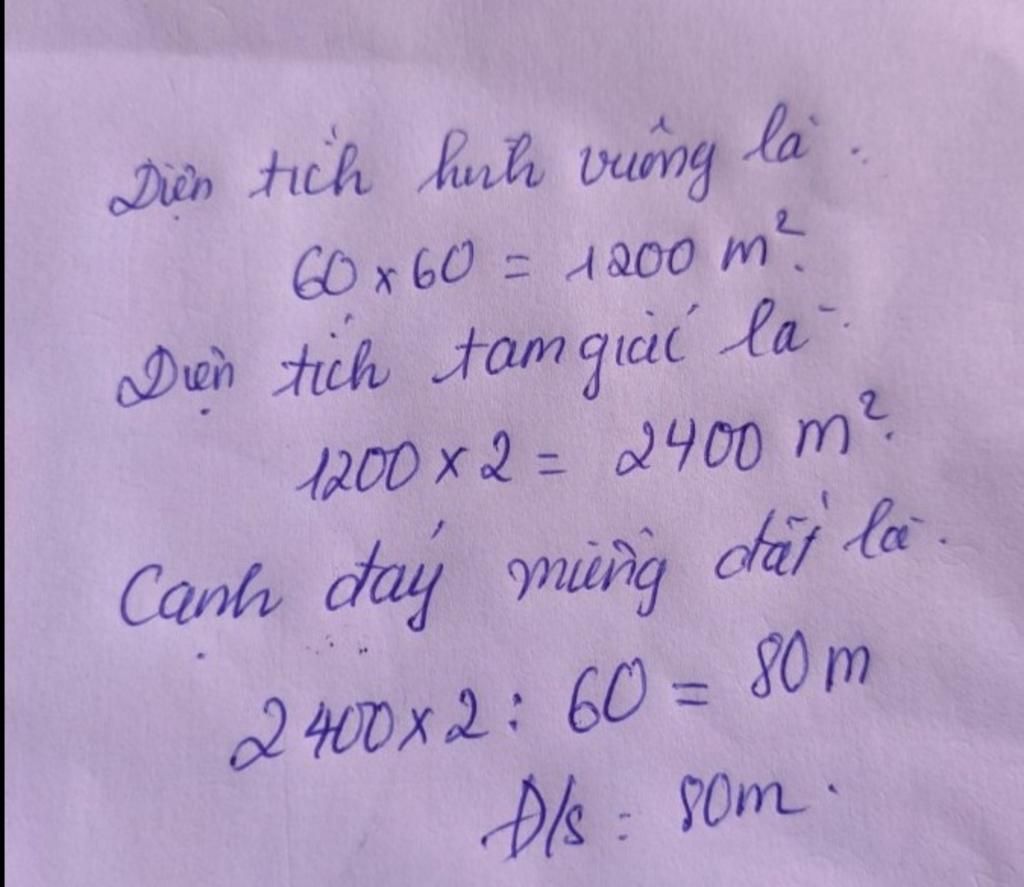 Diện tích hình vuông là.
60 x 60 = 1200 m².
Diện tích tam giác là.
1200 x 2 = 2400 m².
Cạnh đáy miếng đất là.
2400 x 2 : 60 = 80 m
Đ/s : 80m.